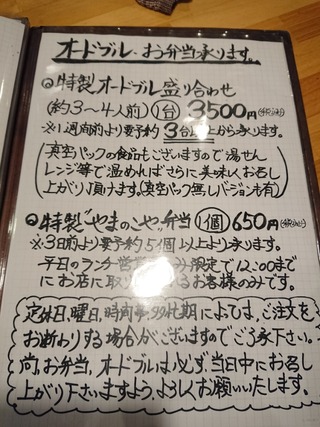 オードブル、お弁当承ります。
特製オードブル盛り合わせ
(約3〜4人前) 1台 3500円(税込)
※1週間前より要予約 3台以上から承ります。
(真空パックの食品もございますので湯せん
レンジ等で温めればさらに美味しくお召し
上がり頂けます。(真空パック無しバージョンも有)
特製"やまのこや"弁当 1個 650円(税込)
※3日前より要予約5個以上より承ります。
平日のランチ営業 限定で12:00まで
にお店に取 るお客様のみです。
定休日、曜日、時間帯、多忙期によっては、ご注文を
お断わりする場合がございますのでご了承下さい。
尚、お弁当、オードブルは必ず、当日中にお召し
上がり下さいますよう、よろしくお願いいたします。